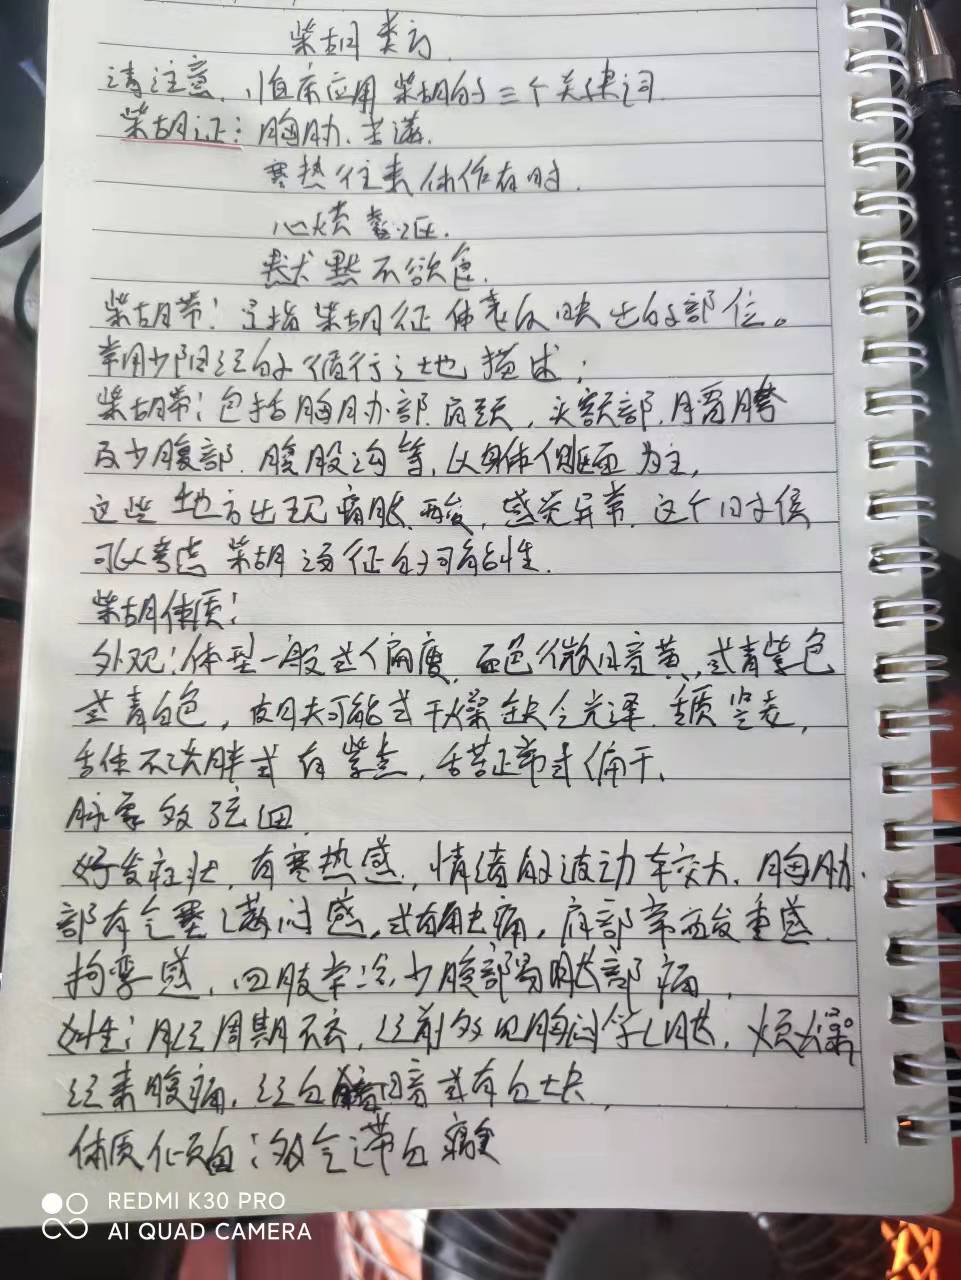 柴胡类方
请注意、临床应用柴胡的三个关键词
柴胡证：胸胁、苦满.
寒热往来休作有时.
心烦喜呕.
默默不欲食.
柴胡带：是指柴胡征体表反映出的部位。
常用少阳经的循行之地描述；
柴胡带：包括胸胁部.肩颈，头额部，胯
及少腹部.腹股沟等，以身体侧面为主，
这些地方出现痛胀、酸，感觉异常.这个时候
可以考虑柴胡汤征的可能性.
柴胡体质：
外观：体型一般或偏瘦.面色微暗黄，或青紫色
或青白色，皮肤可能或干燥缺乏光泽.舌质坚老，
舌体不淡胖或有紫点，舌苔正常或偏干、
脉象多弦细
好发症状，有寒热感，情绪的波动较大、胸胁、
部有气塞满闷感，或有触痛，肩部常有酸重感
拘挛感，四肢常冷、少腹部易胀部痛，
女性：月经周期不齐，经前多见胸闷乳胀，烦躁
经来腹痛、经血暗或有血块，
体质倾向：多气滞血瘀
REDMI K30 PRO
AI QUAD CAMERA